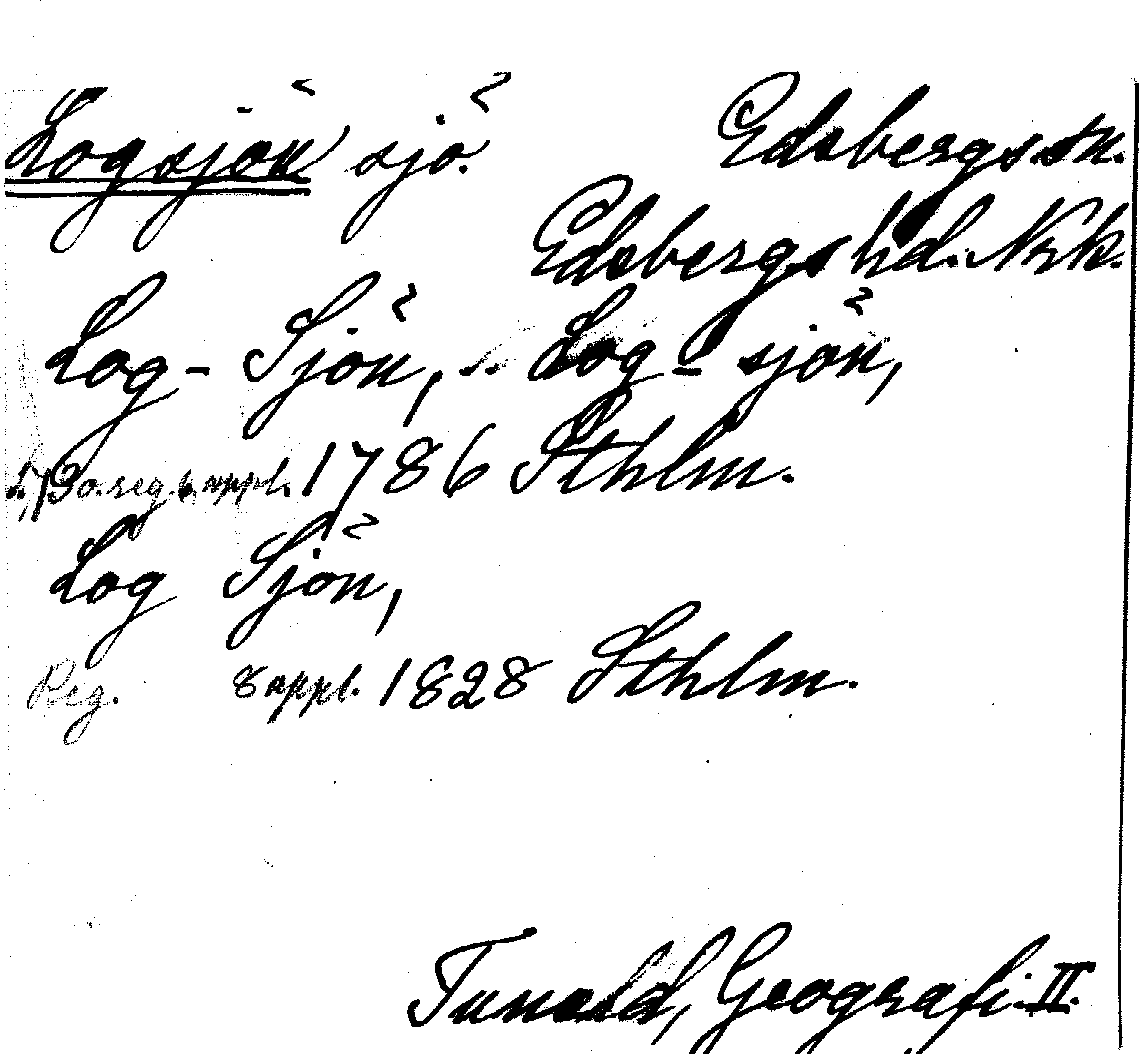 Logsjön sjö. Edsbergs sn.
Edsbergs hd. Nrk.
Log- Sjön, Log- sjön,
o. reg. 6 uppl. 1786 Sthlm.
Log Sjön,
Reg. 8 uppl. 1828 Sthlm.
Tuneld, Geografi. II.